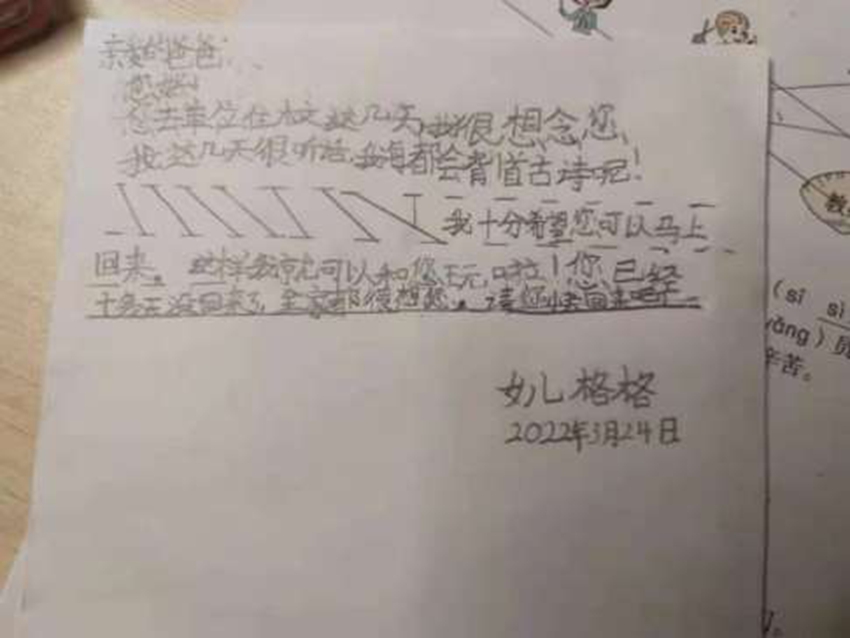 亲爱的爸爸:
您好!
您去单位住 这几天,我很想念您、
我这几天很听话,我每 都会背1首古诗呢!
我十分希望您可以马上
回来。这样我就可以和您玩啦!您已经
十多天没回来了,全家都很想您。请您快回来吧!
女儿格格
2022年3月24日
(sī sì
yǎng)员
辛苦。
教